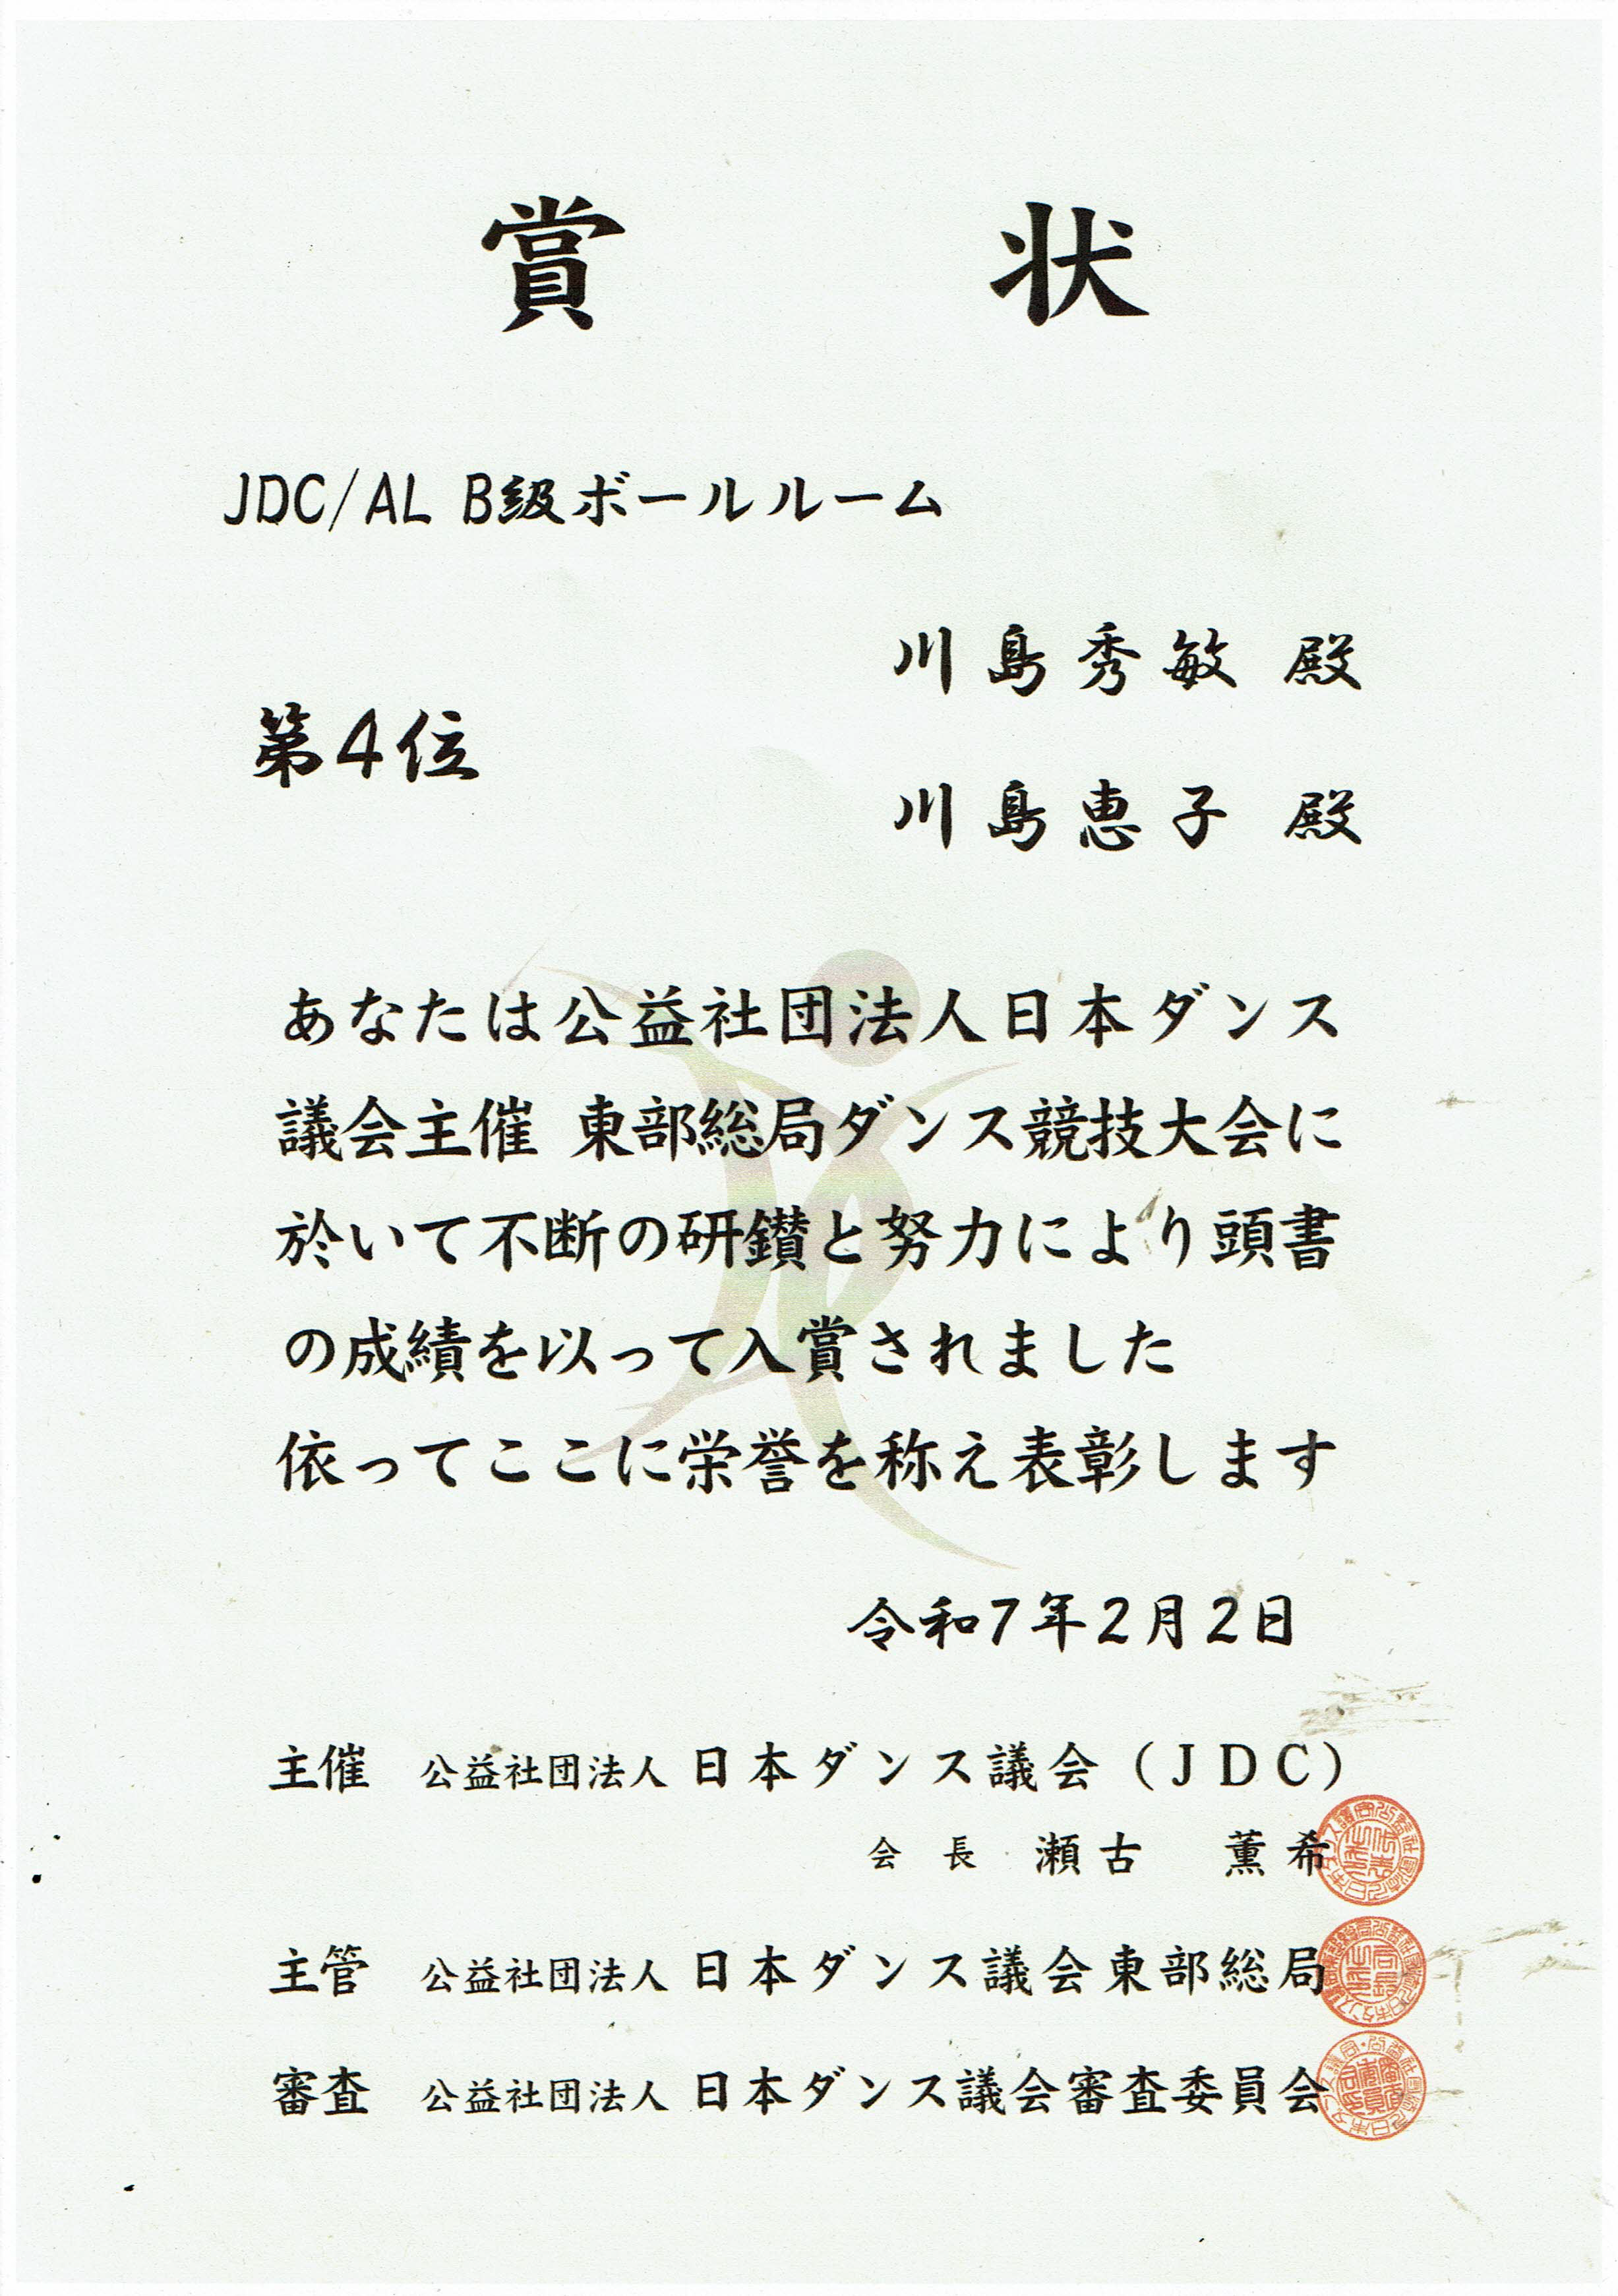 賞状
JDC/AL B級ボールルーム
川島秀敏 殿
第4位
川島恵子 殿
あなたは公益社団法人日本ダンス
議会主催 東部総局ダンス競技大会に
於いて不断の研鑚と努力により頭書
の成績を以って入賞されました
依ってここに栄誉を称え表彰します
令和7年2月2日
主催 公益社団法人 日本ダンス議会(JDC)
会長 瀬古 薫希
主管 公益社団法人 日本ダンス議会東部総局
審査 公益社団法人 日本ダンス議会審査委員会